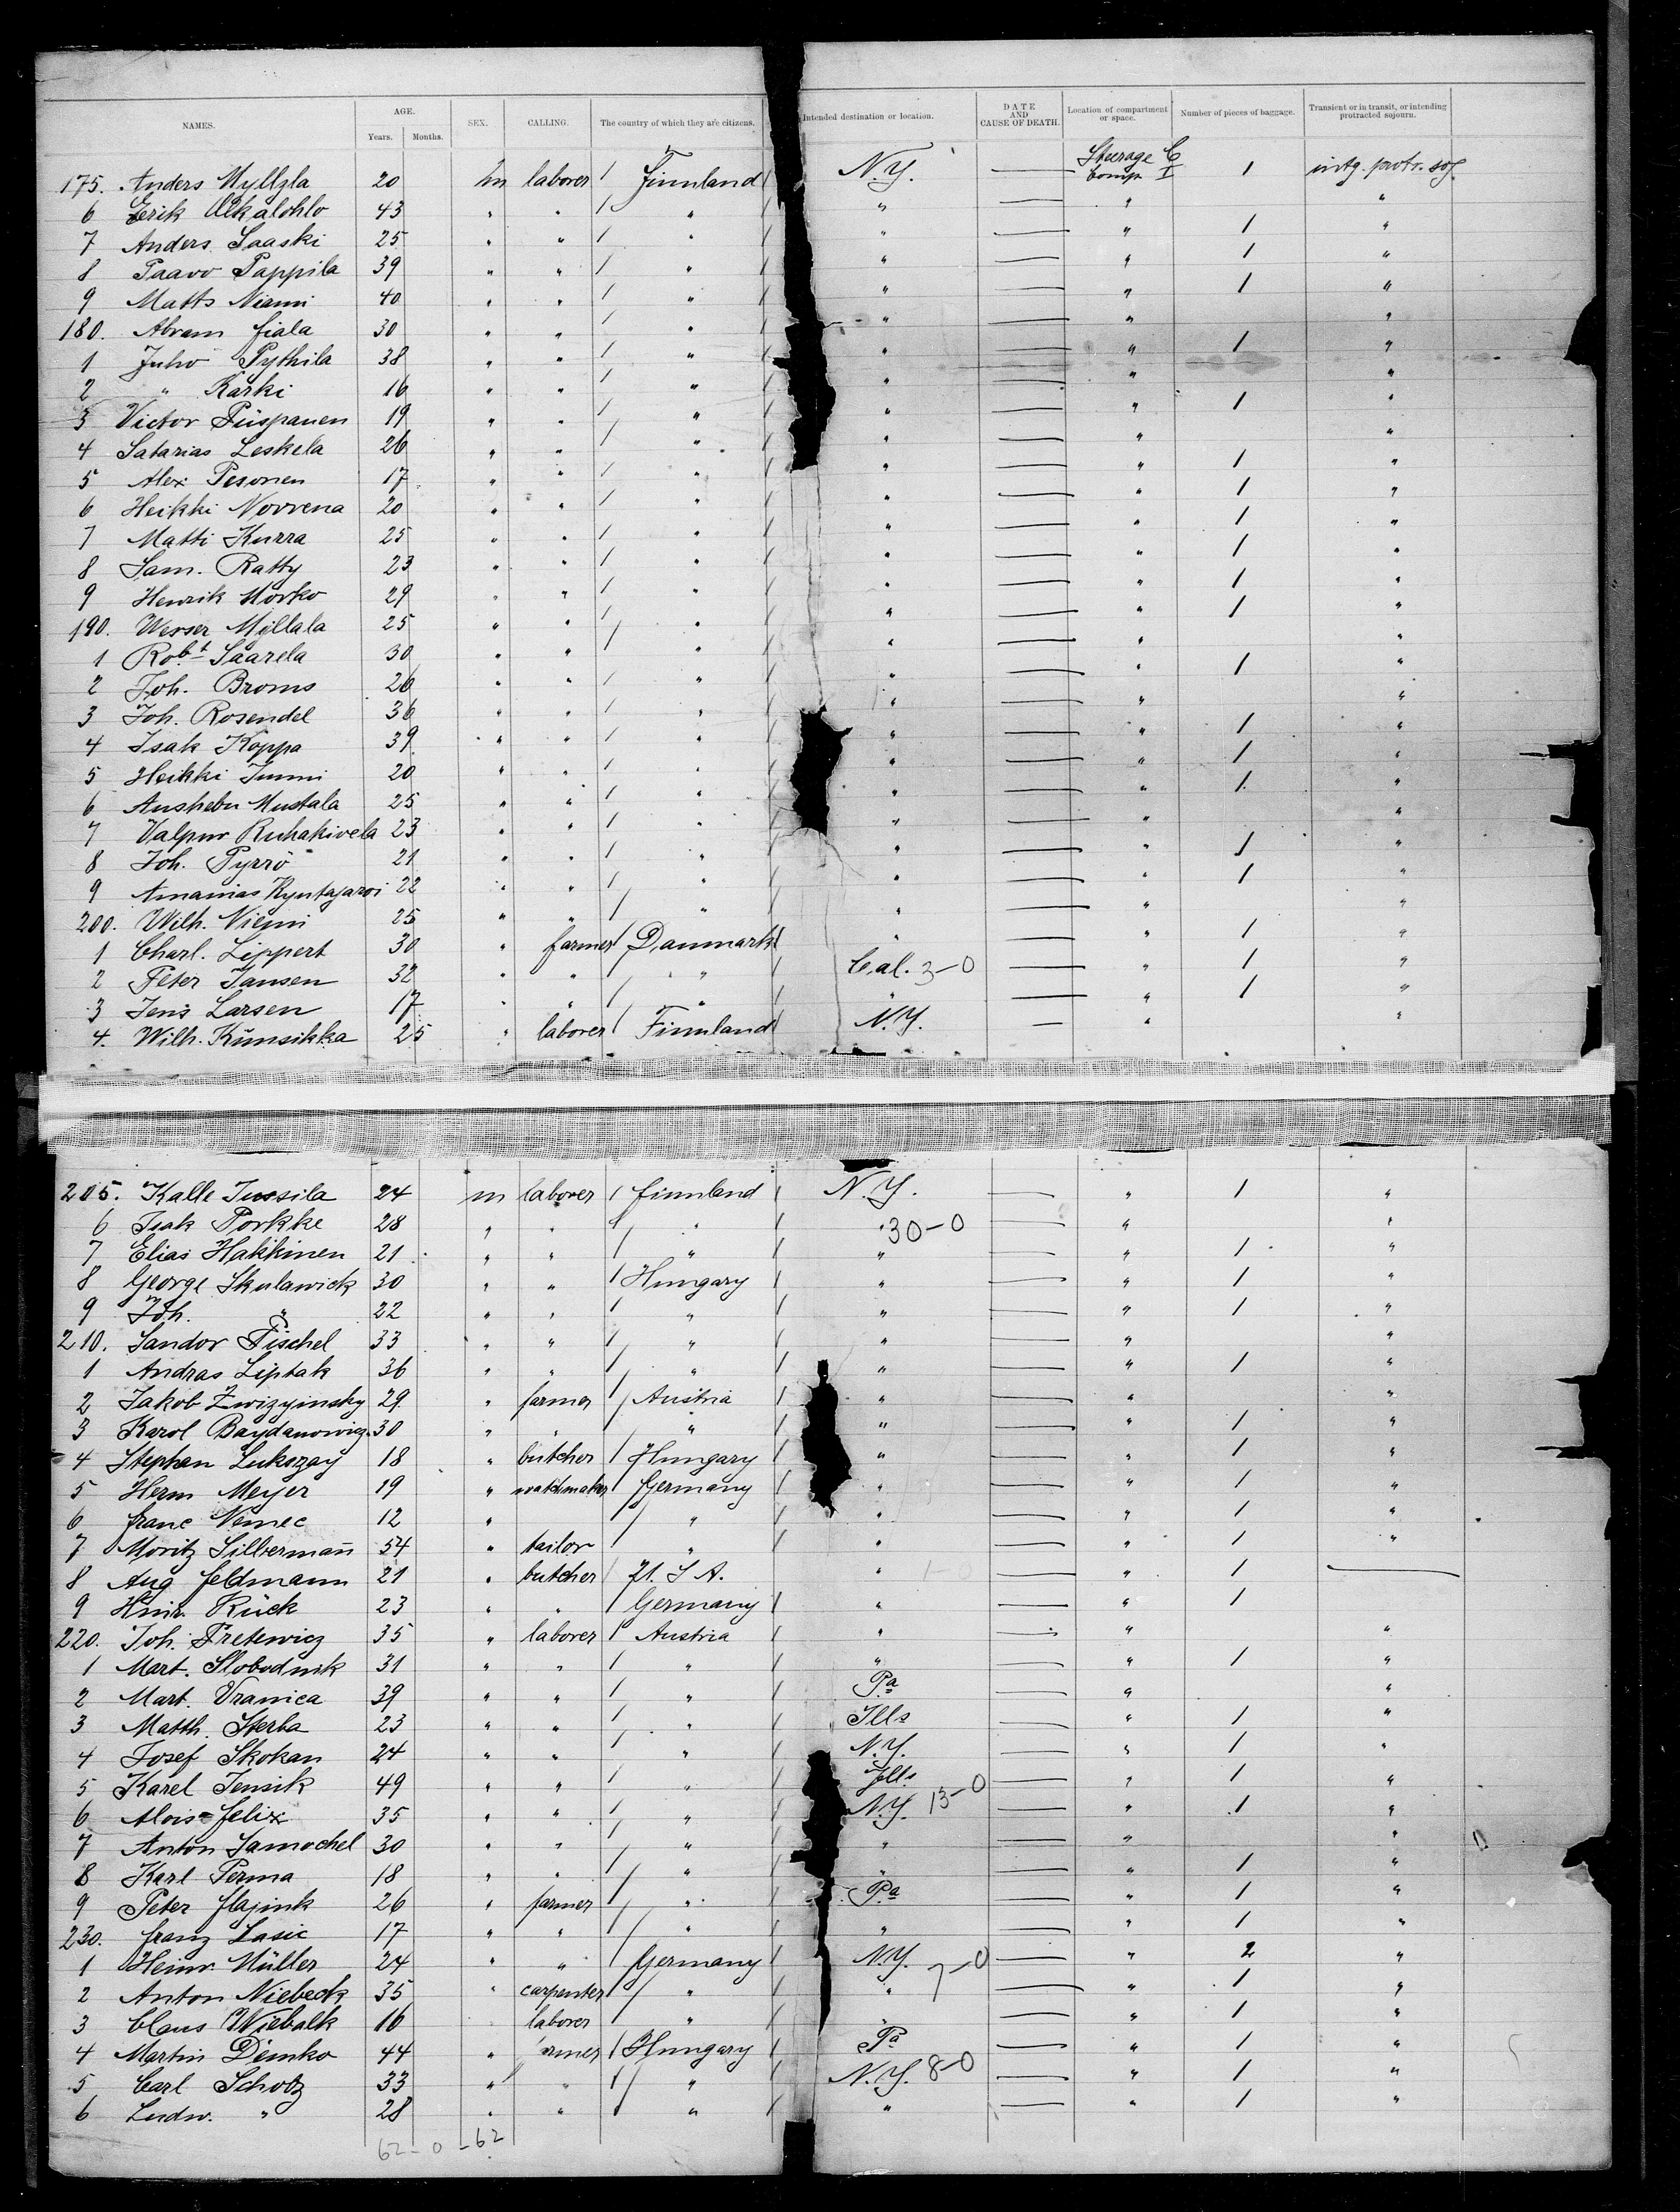 NAMES. AGE. Years. Months. SEX. CALLING. The country of which they are citizens. Intended destination or location. DATE AND CAUSE OF DEATH. Location of compartment or space. Number of pieces of baggage. Transient or in transit, or intending protracted sojourn.
175. Anders Myllyla 20 m laborer / Finnland / N.Y. — Steerage C Comp. I 1 intg. protr. soj.
6 Erik Alkalohlo 43 " " / " " — " "
7 Anders Saaski 25 " " / " / " — " 1 "
8 Paavo Pappila 39 " " / " / " — " 1 "
9 Matts Niemi 40 " " / " / " — " 1 "
180. Abram fiala 30 " " / " " — " "
1 Juho Pythila 38 " " / " / " — " 1 "
2 " Karki 16 " " / " / " — " "
3 Victor Püspanen 19 " " / " / " — " 1 "
4 Satarias Leskela 26 " " / " / " — " "
5 Alex Pesonen 17 " " / " / " — " 1 "
6 Heikki Norrena 20 " " / " / " — " 1 "
7 Matti Kurra 25 " " / " / " — " 1 "
8 Sam. Ratty 23 " " / " / " — " 1 "
9 Henrik Morko 29 " " / " / " — " 1 "
190. Werser Myllala 25 " " / " / " — " 1 "
1 Robt Saarela 30 " " / " / " — " "
2 Joh. Broms 26 " " / " / " — " 1 "
3 Joh. Rosendel 36 " " / " / " — " "
4 Isak Koppa 39 " " / " / " — " 1 "
5 Heikki Junni 20 " " / " / " — " 1 "
6 Aushebu Mustala 25 " " / " / " — " 1 "
7 Valpur Ruhakivela 23 " " / " / " — " "
8 Joh. Pyrrö 21 " " / " / " — " 1 "
9 Amanias Kyntajarvi 22 " " / " / " — " 1 "
200. Wilh. Niemi 25 " " / " / " — " "
1 Charl. Lippert 30 " farmer / Danmark / " — " 1 "
2 Peter Jansen 32 " " / " / Cal. 3-0 — " 1 "
3 Jens Larsen 17 " " / " / " — " 1 "
4. Wilh. Kumsikka 25 " laborer / Finnland / N.Y. — " "
205. Kalle Jussila 24 m laborer / finnland / N.Y. — " 1 "
6 Isak Porkke 28 " " / " / " 30-0 — " "
7 Elias Hakkinen 21 " " / " / " — " 1 "
8 George Skulawick 30 " " / Hungary / " — " 1 "
9 Joh. " 22 " " / " / " — " 1 "
210. Sandor Fischel 33 " " / " / " — " "
1 Andras Liptak 36 " " / " / " — " 1 "
2 Jakob Zwizyinsky 29 " farmer / Austria / " — " "
3 Karol Baydanowicz 30 " " / " / " — " 1 "
4 Stephan Lukozay 18 " butcher / Hungary / " — " 1 "
5 Herm Meyer 19 " watchmaker / Germany / " — " 1 "
6 franc Nemec 12 " / " / " — " 1 "
7 Moritz Silbermann 54 " tailor / " / " — " 1 "
8 Aug feldmann 21 " butcher / U. S A. " — " 1 —
9 Hinr. Rück 23 " " / Germany / " — " 1
220. Joh. Fretewicz 35 " laborer / Austria / " — " "
1 Mart. Slobodnik 31 " " / " / " — " 1 "
2 Mart. Vranica 39 " " / " / Pa — " "
3 Matth. Sterba 23 " " / " / Ills — " 1 "
4 Josef Skokan 24 " " / " / N.Y. — " 1 "
5 Karel Jensik 49 " " / " / Ills — " 1 "
6 Alois felix 35 " " / " / N.Y. 13-0 — " 1 "
7 Anton Samochel 30 " " / " / " — " "
8 Karl Perma 18 " " / " / " — " 1 "
9 Peter flajink 26 " farmer / " / Pa — " 1 "
230. franz Lasic 17 " " / " / " — " 1 "
1 Heinr. Müller 24 " " / Germany / N.Y. 7-0 — " 2 "
2 Anton Niebeck 35 " carpenter / " / " — " 1 "
3 Claus Wiebalk 16 laborer / " / " — " 1 "
4 Martin Demko 44 " armer / Hungary / Pa — " 1 "
5 Carl Scholz 33 " " / " / N.Y. 8-0 — " 1 "
6 Ludw. " 28 " " / " / " — " 1 "
62-0-62